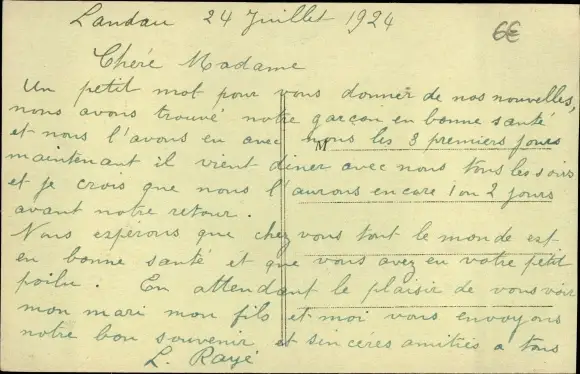 Landau 24 Juillet 1924
6€
Chère Madame
Un petit mot pour vous donner de nos nouvelles,
nous avons trouvé notre garçon en bonne santé
et nous l'avons eu avec nous les 3 premiers jours
M
maintenant il vient diner avec nous tous les soirs
et je crois que nous l'aurons encore 1 ou 2 jours
avant notre retour.
Nous espérons que chez vous tout le monde est
en bonne santé et que vous avez eu votre petit
poilu. En attendant le plaisir de vous voir
mon mari mon fils et moi vous envoyons
notre bon souvenir et sincères amitiés a tous
L. Rayé